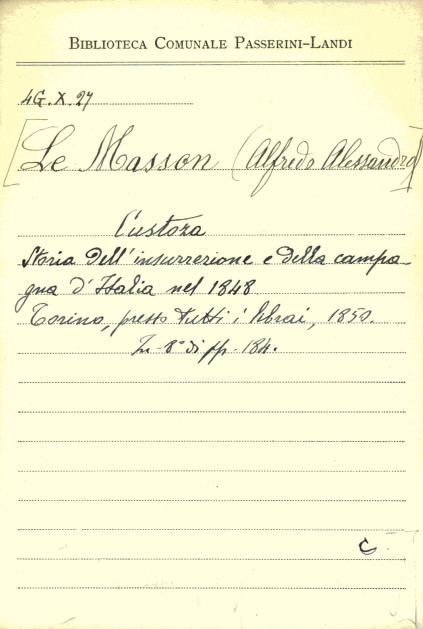 BIBLIOTECA COMUNALE PASSERINI-LANDI
4G.X.27
[Le Masson (Alfredo Alessandro)]
Custoza
Storia dell'insurrezione e della campa-
gna d'Italia nel 1848
Torino, presso tutti i librai, 1850.
In-8° di pp. 184.
C.